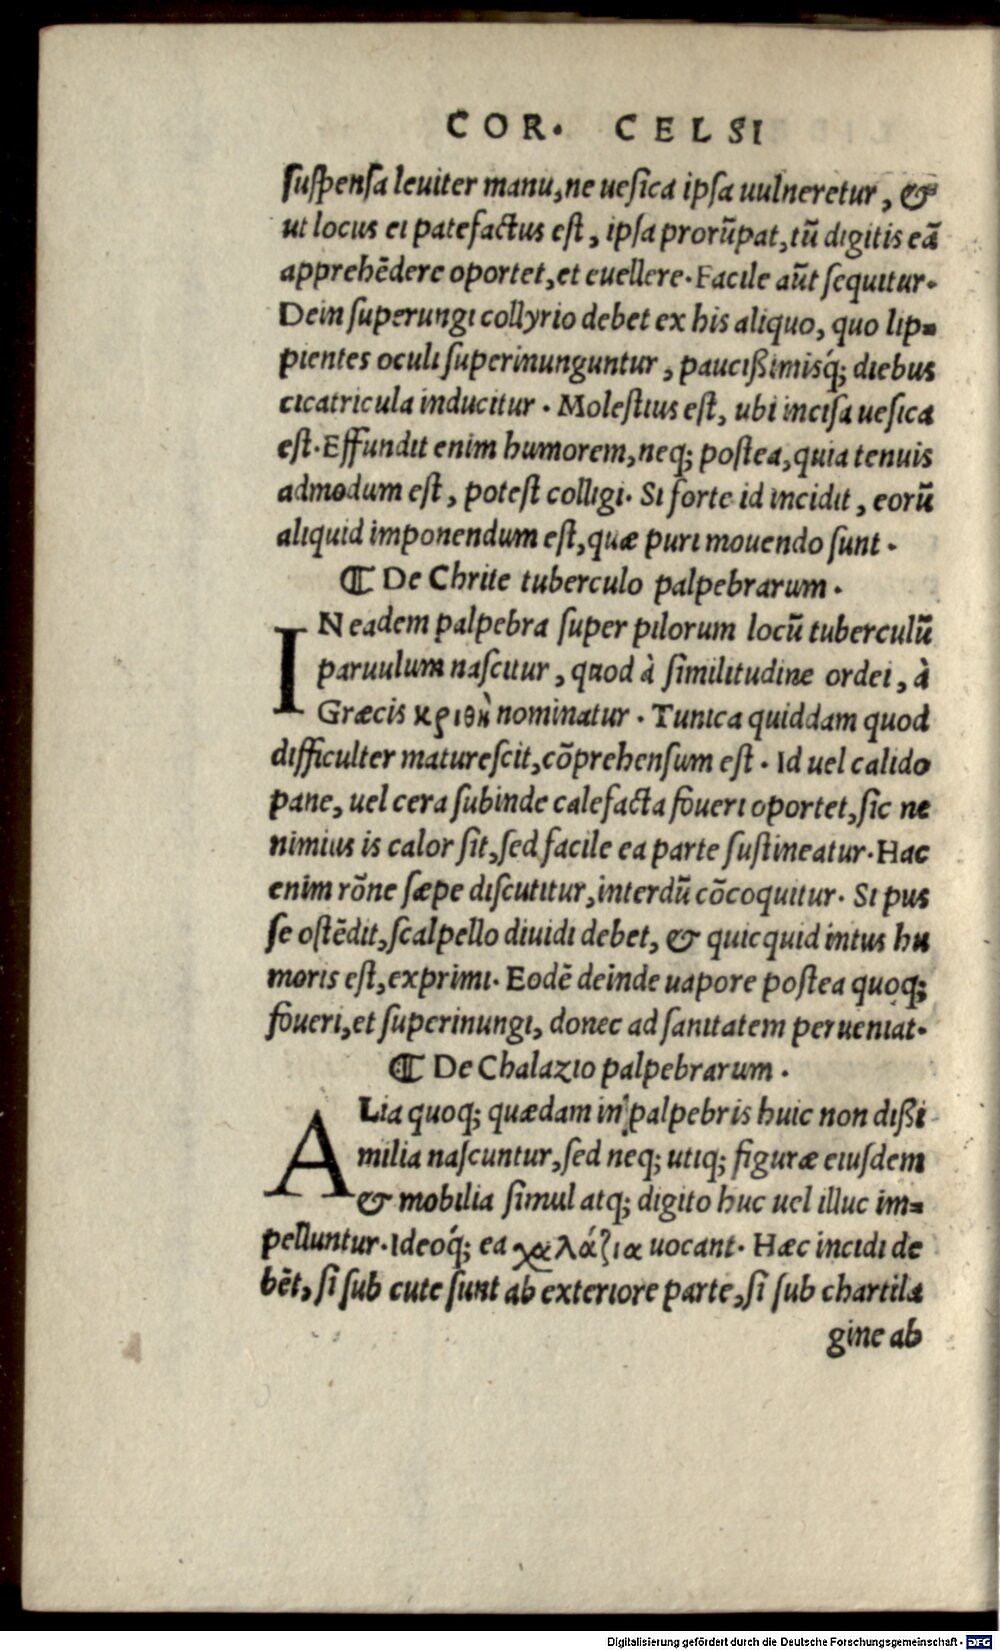 COR. CELSI
suſpenſa leuiter manu, ne ueſica ipſa uulneretur, &
ut locus ei patefactus eſt, ipſa prorūpat, tū digitis eā
apprehēdere oportet, et euellere. Facile aūt ſequitur.
Dein ſuperungi collyrio debet ex his aliquo, quo lip=
pientes oculi ſuperinunguntur, pauciſſimisq́; diebus
cicatricula inducitur. Moleſtius eſt, ubi inciſa ueſica
eſt. Effundit enim humorem, neq; poſtea, quia tenuis
admodum eſt, poteſt colligi. Si forte id incidit, eorū
aliquid imponendum eſt, quæ puri mouendo ſunt.
¶ De Chrite tuberculo palpebrarum.
IN eadem palpebra ſuper pilorum locū tuberculū
paruulum naſcitur, quod à ſimilitudine ordei, à
Græcis κριθὴ nominatur. Tunica quiddam quod
difficulter matureſcit, cōprehenſum eſt. Id uel calido
pane, uel cera ſubinde calefacta foueri oportet, ſic ne
nimius is calor ſit, ſed facile ea parte ſuſtineatur. Hac
enim rōne ſæpe diſcutitur, interdū cōcoquitur. Si pus
ſe oſtēdit, ſcalpello diuidi debet, & quicquid intus hu
moris eſt, exprimi. Eodē deinde uapore poſtea quoq;
foueri, et ſuperinungi, donec ad ſanitatem perueniat.
¶ De Chalazio palpebrarum.
ALia quoq; quædam in palpebris huic non diſſi
milia naſcuntur, ſed neq; utiq; figuræ eiuſdem
& mobilia ſimul atq; digito huc uel illuc im=
pelluntur. Ideoq́; ea χαλάζια uocant. Hæc incidi de
bēt, ſi ſub cute ſunt ab exteriore parte, ſi ſub chartila
gine ab
Digitalisierung gefördert durch die Deutsche Forschungsgemeinschaft - DFG